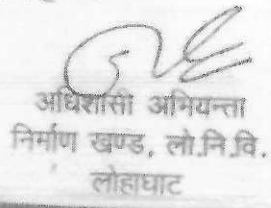 अधिशासी अभियन्ता
निर्माण खण्ड, लो.नि.वि.
लोहाघाट